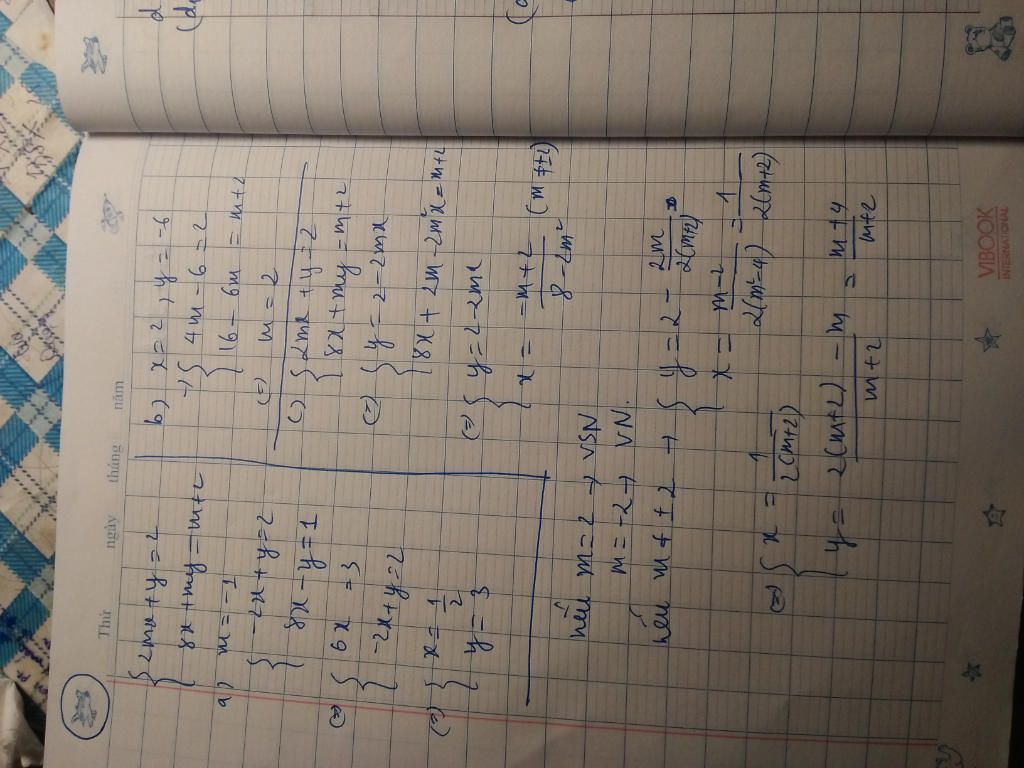 Thứ ngày tháng năm
{ 2mx + y = 2
8x + my = m + 2
a) m = -1
{ -2x + y = 2
8x - y = 1
(=) { 6x = 3
-2x + y = 2
(=) { x = 1/2
y = 3
b) x = 2, y = -6
→ { 4m - 6 = 2
16 - 6m = m + 2
(=) m = 2
c) { 2mx + y = 2
8x + my = m + 2
(=) { y = 2 - 2mx
8x + 2m - 2m²x = m + 2
(=) { y = 2 - 2mx
x = (-m + 2)/(8 - 2m²) (m ≠ ±2)
nếu m = 2 → VSN
m = -2 → VN.
nếu m ≠ ±2 → { y = 2 - 2m/2(m+2)
x = (m - 2)/2(m² - 4) = 1/2(m+2)
(=) { x = 1/2(m+2)
y = (2(m+2) - m)/(m + 2) = (m + 4)/(m + 2)
VIBOOK
INTERNATIONAL